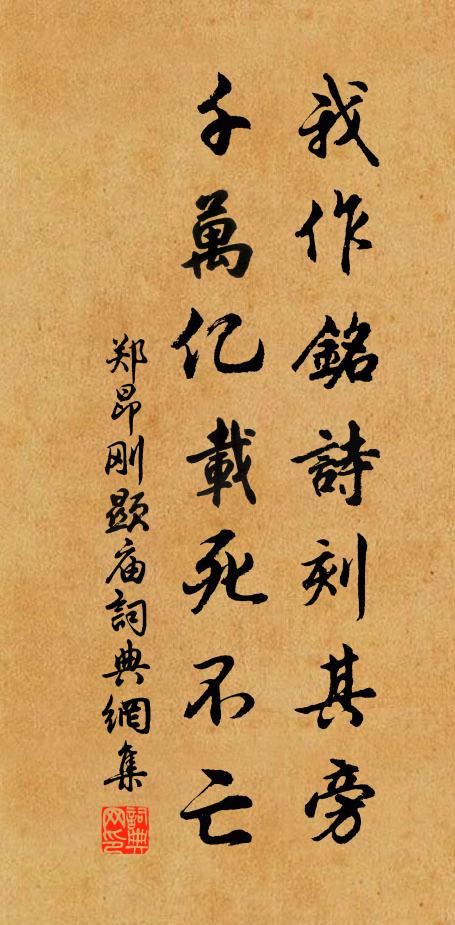 我作銘詩刻其旁
千萬亿載死不亡
郑昂刚顕庙詞典網集
詞典网印